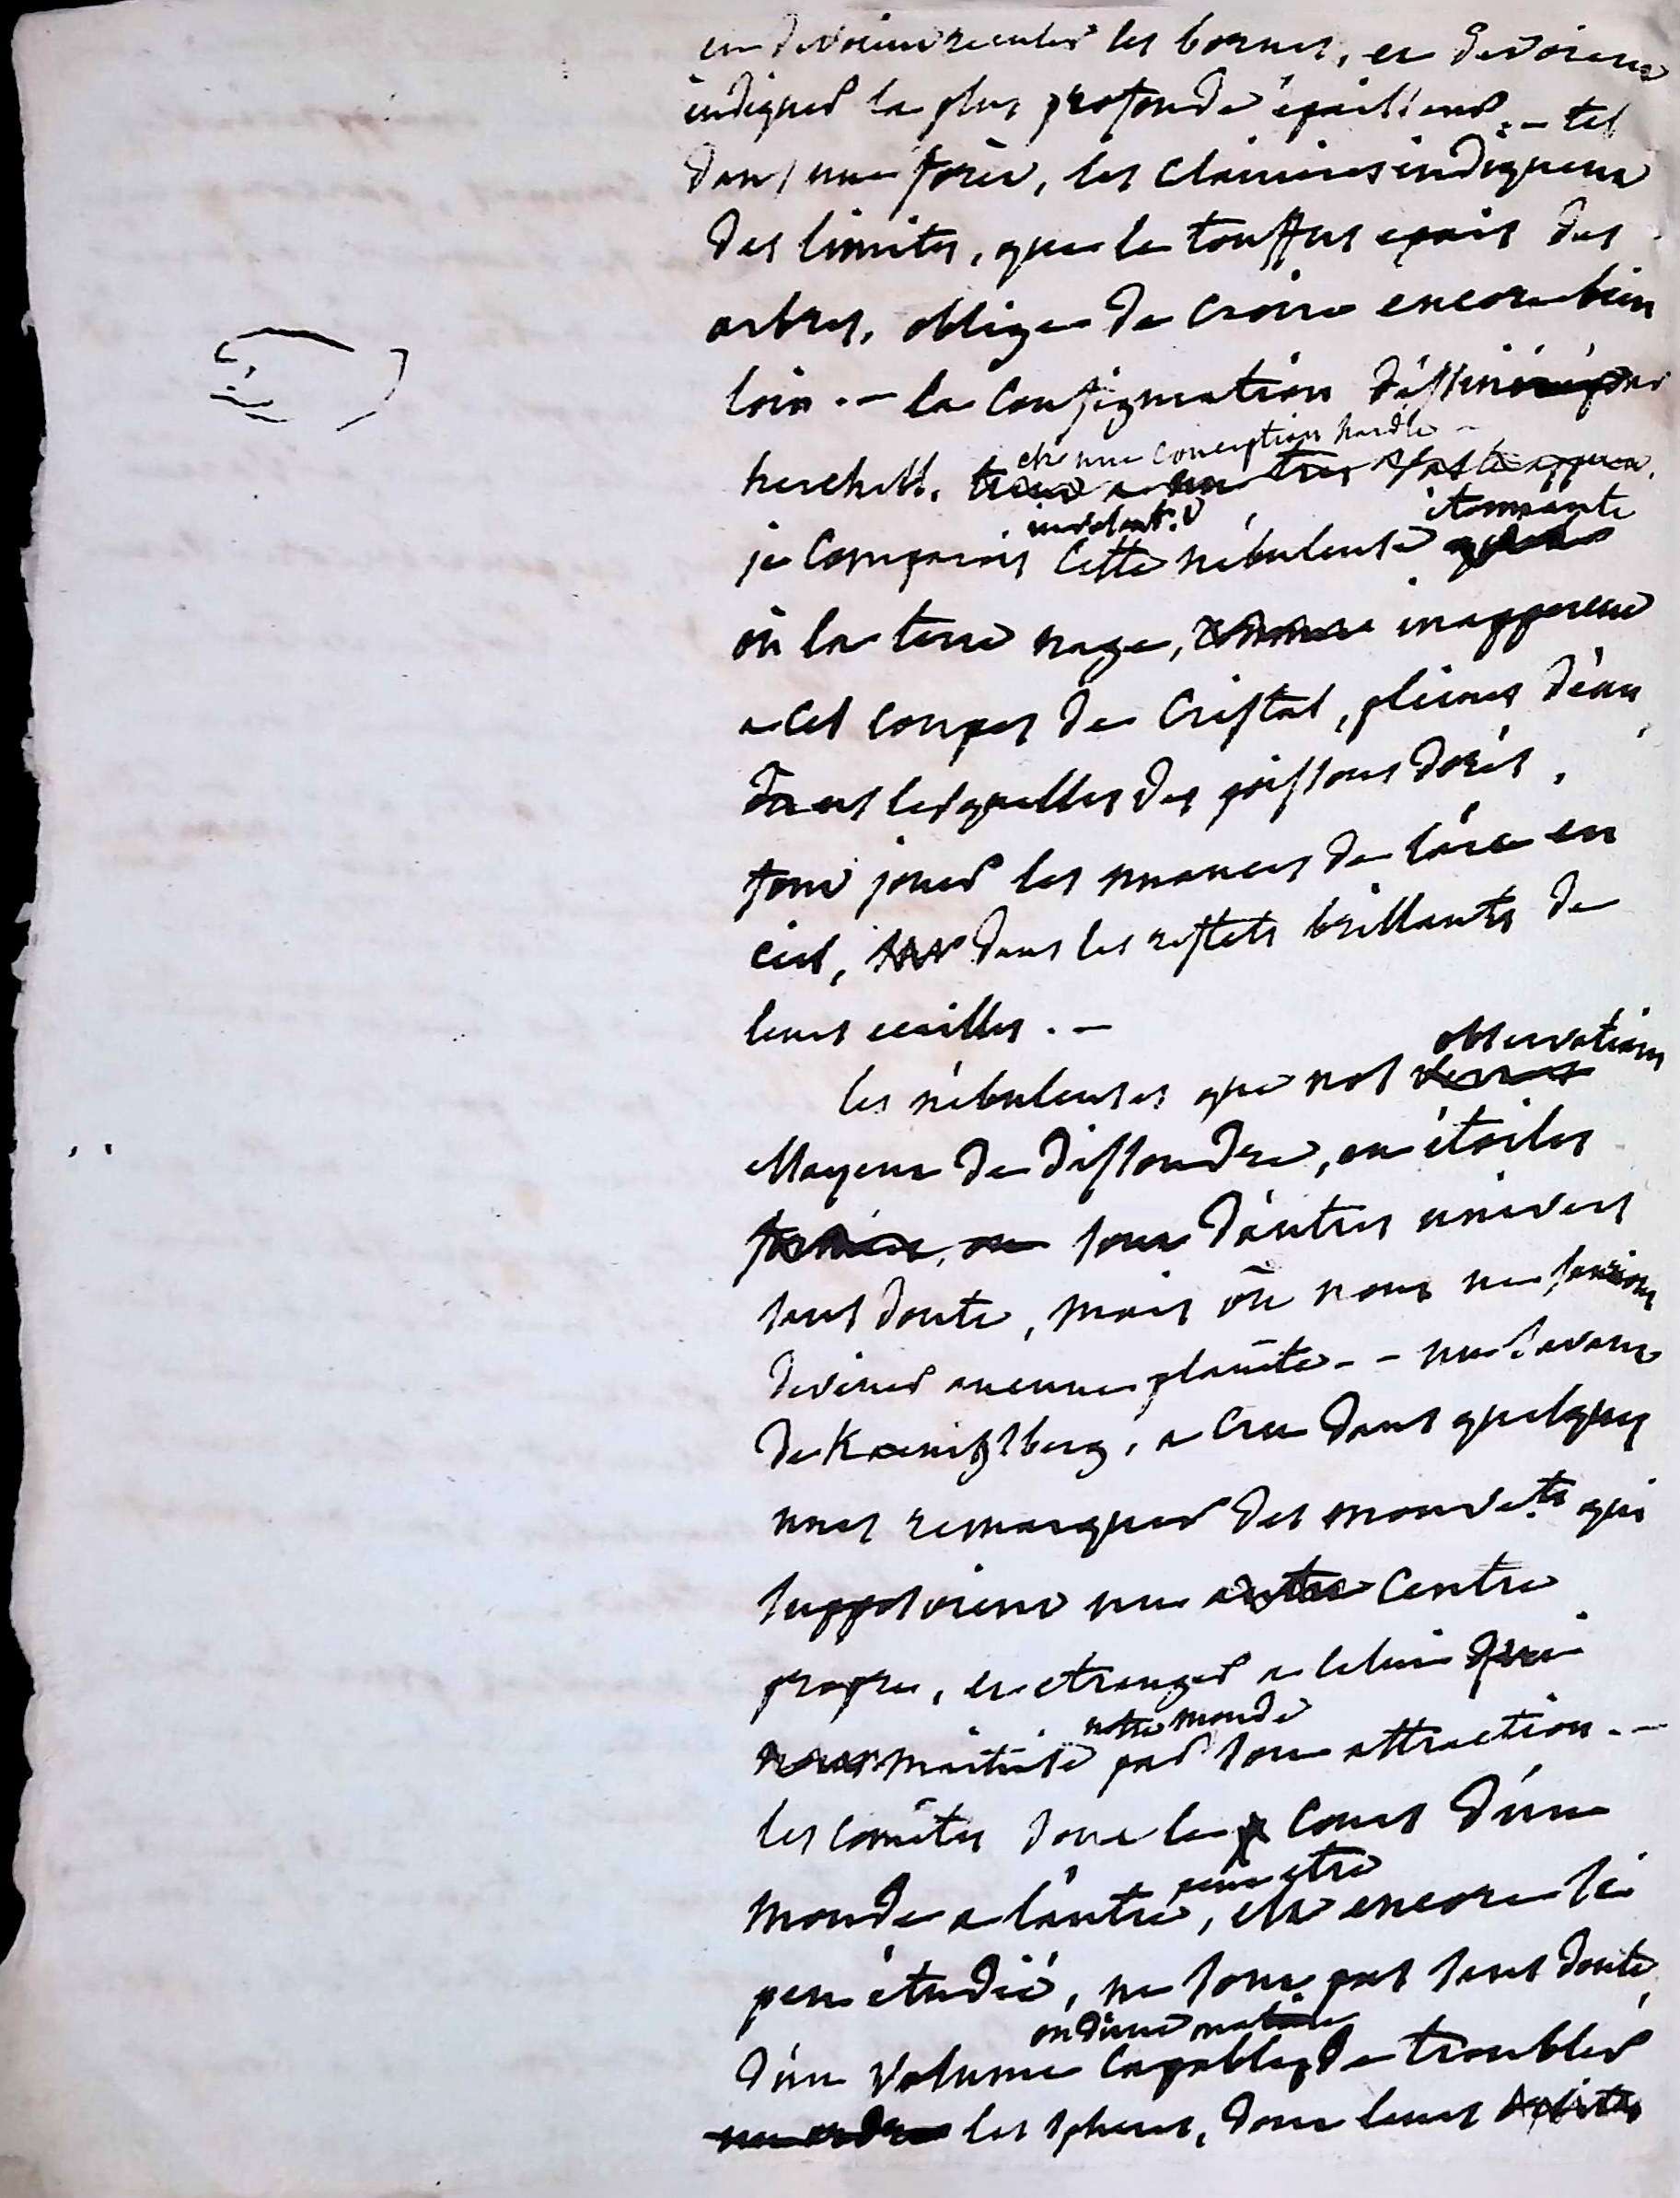 en devoient reculer les bornes, et devoient
indiquer la plus profonde épaisseur. – tel
dans une forêt, les clairieres indiquent
des limites, que le touffus epais des
arbres, oblige de croire encore bien
loin. – la configuration dessinée par
est une conception hardie –
herchell. tres vaste
involontt étonnante
je comparois cette nébuleuse
où la terre nage, inapperçue
a ces coupes de cristal, pleines d'eau
dans lesquelles des poissons dorés,
font jouer les nuances de l'arc en
ciel, dans les reflets brillants de
leurs ecailles. –
observations
les nébuleuses que nos verres
essayent de dissoudre, en étoiles
sont d'autres univers
sans doute, mais où nous ne saurions
deviner aucune planète – – un savant
de Kœnigsberg, a cru dans quelques
unes remarquer des mouvets qui
supposoient un autre centre
propre, et etranger a celui qui
notre monde
nous maitrise par son attraction. –
les comètes dont le cours d'un
peut etre
monde a l'autre, est encore si
peu étudié, ne sont pas sans doute,
ou d'une nature
d'un volume capables de troubler
un ordre les spheres, dont leurs